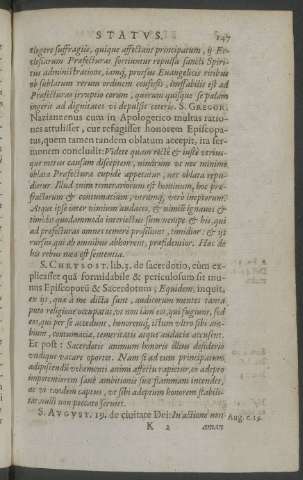 STATVS. 147
eligere suffragiis, quique affectant principatum, ij Ec-
clesiarum Præfecturas sortiuntur repulsa sancti Spiri-
tus administratione, iamq́, prorsus Euangelicis ritibus
ob sublatum rerum ordinem confusis, ineffabilis est ad
Præfecturas irruptio eorum, quorum quisque se palam
ingerit ad dignitates vi depulsis ceteris. S. GREGOR.
Nazianzenus cum in Apologetico multas ratio-
nes attulisset, cur refugisset honorem Episcopa-
tus, quem tamen tandem oblatum accepit, ita ser-
monem concludit: Videte quàm rectè & iustè vtrius-
que metus causam disceptem, nimirum vt nec minimè
oblata Præfectura cupidè appetatur, nec oblata repu-
dietur. Illud enim temerariorum est hominum, hoc præ-
fractorum & contumacium, vtrumq́, verò ineptorum.
Atque ipse inter nimium audaces, & nimis ignauos &
timidos quodammodo interiectus sum nempe & his, qui
ad præfecturas omnes temerè prosiliunt, timidior: & ijs
rursus, qui ab omnibus abhorrent, præfidentior. Hæc de
his rebus mea est sententia.
S. CHRYSOST. lib. 3. de sacerdotio, cùm ex-
plicasset quâ formidabile & periculosum sit mu-
nus Episcoporū & Sacerdotum; Equidem, inquit,
ex ijs, quæ à me dicta sunt, auditorum mentes tanta
puto religione occupatas, vt non iam eos, qui fugiunt, sed
eos, qui per se accedunt, honoremq́, istum vltrò sibi am-
biunt, contumaciæ, temeritatis atque audaciæ accusent.
Et post: Sacerdotis animum honoris illius desiderio
vndique vacare oportet. Nam si ad eum principatum
adipiscendū vehementi animi affectu rapietur, eo adepto
imporentiorem sanè ambitionis suæ flammam intendet,
ac vi tandem captus, vt sibi adeptum honorem stabiliat,
nulli non peccato seruiet.
S. AVGVST. 19. de ciuitate Dei: In actione non
Aug. c. 19.
K 2 aman